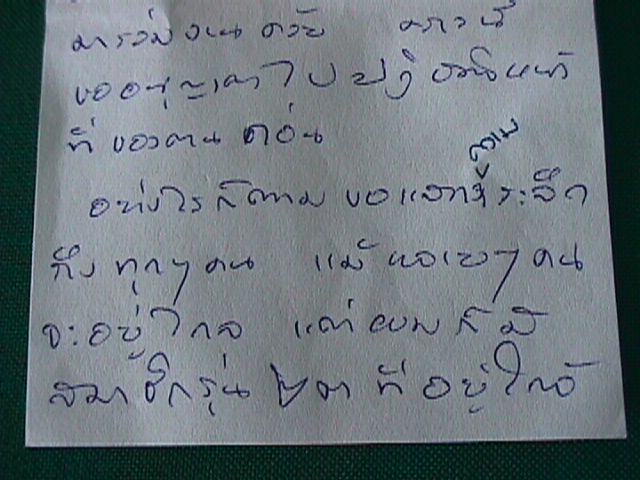 มาร่วมงานด้วย คราวนี้
ขออนุญาตไปปฏิบัติหน้า
ที่ของตน ก่อน
ความ
อย่างไรก็ตาม ขอแสดง ระลึก
ถึง ทุกๆ คน แม้หลายๆ คน
จะอยู่ไกล แต่ผมก็มี
สมาชิกรุ่น ๒๓ ที่อยู่ใกล้